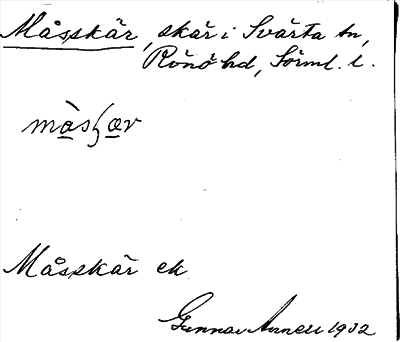 Måsskär, skär i Svärta sn,
Rönö hd, Sörml. l.
Måsskär ek
Gunnar 1932